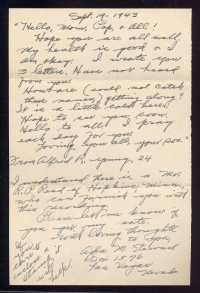 Sept. 19. 1943
"Hello, Mom, Pop & All!
Hope you are all well,
My health is good & I
am okay. I wrote you
3 letters. Have not heard
from you
How are (could not catch
these names) getting along?
It is a little cold here.
Hope to see you soon.
Hello to all. I pray
each day for you.
Loving you all, your son."
From Alfred R. Young, 24
I understand there is a Mrs
R.P. Read of Hopkins, Minn,
who can furnish you with
this recording.
Please let me know if
you get this note.
With loving thoughts
to you,
M. Stewart
Box 1576
Las Vegas
Nevada
If
you
care
enclose a
stamp
will
help!